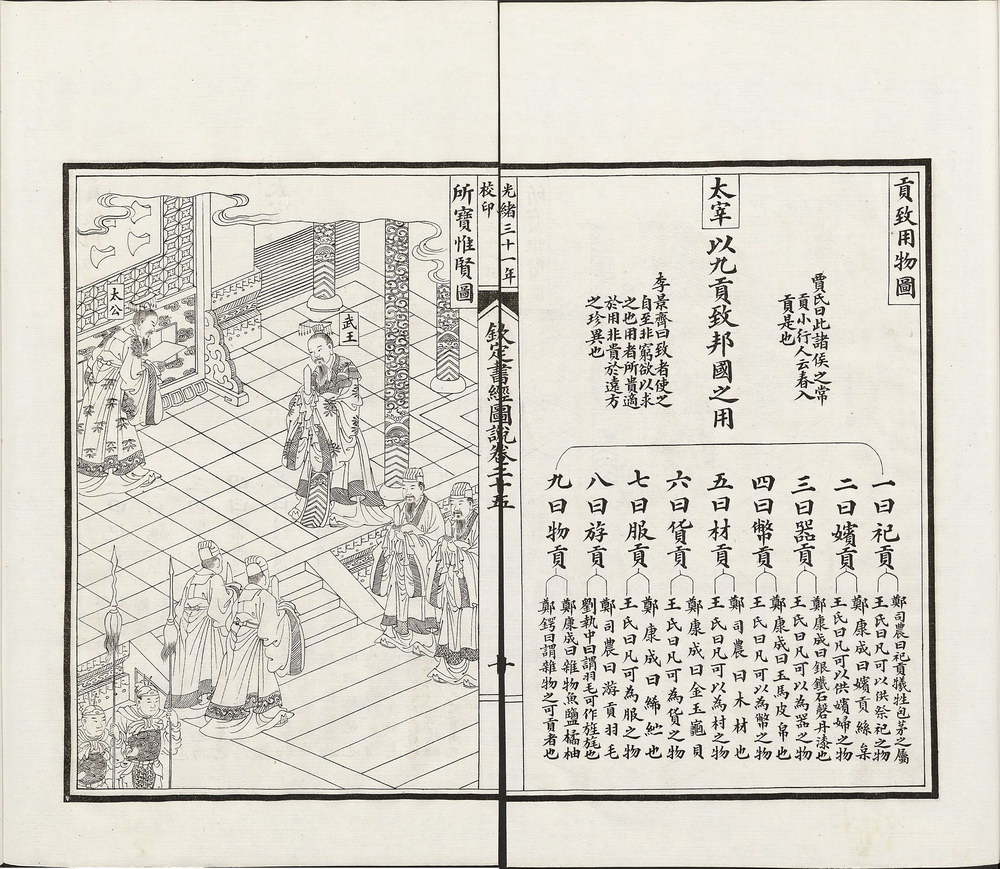 貢致用物圖
賈氏曰此諸侯之常
貢小行人云春入
貢是也
太宰
以九貢致邦國之用
李景齊曰致者使之
自至非窮欲以求
之也用者所貴適
於用非貴於遠方
之珍異也
一曰祀貢
鄭司農曰祀貢犧牲包茅之屬
王氏曰凡可以供祭祀之物
二曰嬪貢
鄭康成曰嬪貢絲枲
王氏曰凡可以供嬪婦之物
三曰器貢
鄭康成曰銀鐵石磬丹漆也
王氏曰凡可以為器之物
四曰幣貢
鄭康成曰玉馬皮帛也
王氏曰凡可以為幣之物
五曰材貢
鄭司農曰木材也
王氏曰凡可以為材之物
六曰貨貢
鄭康成曰金玉龜貝
王氏曰凡可為貨之物
七曰服貢
鄭康成曰絺紵也
王氏曰凡可為服之物
八曰斿貢
鄭司農曰游貢羽毛
劉執中曰謂羽毛可作旌旄也
九曰物貢
鄭康成曰雜物魚鹽橘柚
鄭鍔曰謂雜物之可貢者也
光緒三十一年
校印
欽定書經圖說卷三十五
十
所寶惟賢圖
武王
太公